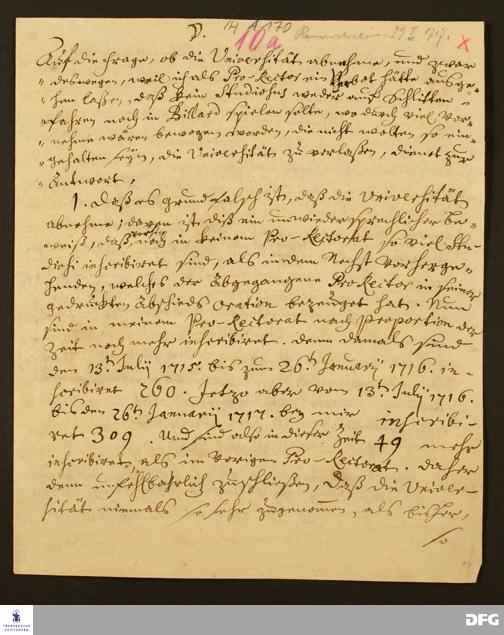 14 A 170
10a
Auf die Frage, ob die Universität abnehme, und zwar
deswegen, weil ich als Pro-Rector ein Verbot hätte ausge-
hen laßen, daß kein Studiosus weder auf Schlitten
fahren noch in Billard spielen solte, wodurch viel Vor-
nehme wären bewogen worden, die nicht wolten so ein-
gehalten seyn, die Universität zu verlaßen, dienet zur
Antwort,
1. daß es grundfalsch ist, daß die Universität
abnehme; davon ist diß ein unwiedersprechlicher Be-
weiß, daß noch in keinem Pro-Rectorat so viel Stu-
diosi inscribiret sind, als in dem Nechst vorherge-
henden, welches der Abgegangene ProRector in seiner
gedruckten Abschieds Oration bezeuget hat. Nun
sind in meinem Pro-Rectorat nach Proportion der
Zeit noch mehr inscribiret. denn damals sind
den 13ᵗ July 1715. bis zum 26ᵗ January 1716. in-
scribiret 260. Jetzo aber vom 13ᵗ July 1716.
bis den 26ᵗ January 1717. bey mir inscribi-
ret 309. Und sind also in dieser Zeit 49 mehr
inscribiret, als im vorigen Pro-Rectorat. daher
denn unfehlbahrlich zuschließen, daß die Univer-
sität niemals so sehr zugenommen, als bisher,
so
FRANCKESCHE STIFTUNGEN
DFG